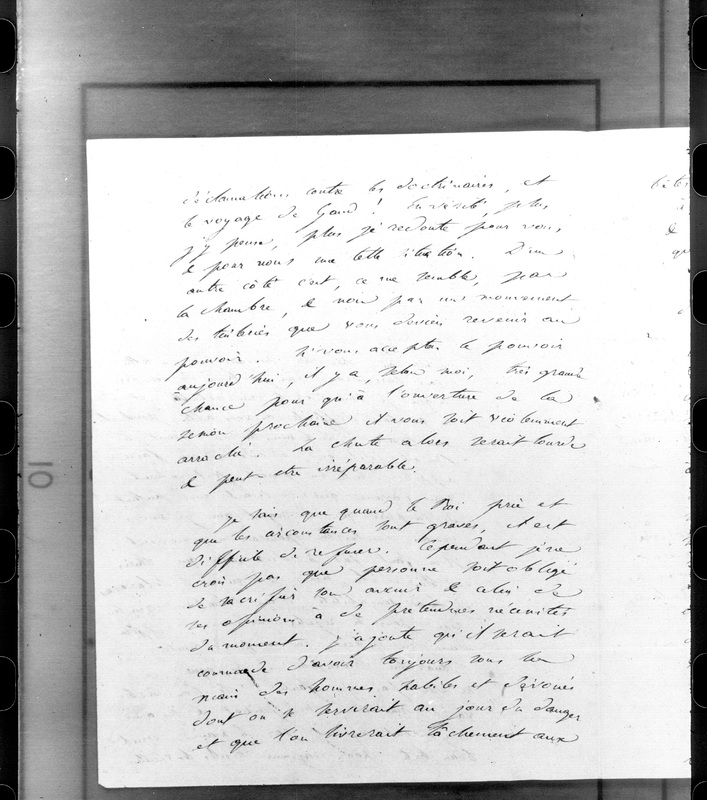 déclamations contre les doctrinaires, et
le voyage de Gand ! En vérité, plus
j'y pense, plus je redoute pour vous,
& pour nous une telle situation. D'un
autre côté c'est, ce me semble, par
la chambre, & non par un mouvement
des que vous devez revenir au
pouvoir. Si vous acceptez le pouvoir
aujourd'hui, il y a, selon moi, très grande
chance pour qu'à l'ouverture de la
session prochaine il vous soit violemment
arraché. La chute alors serait lourde
& peut-etre irréparable.
Je sais que quand le Roi prie et
que les circonstances sont graves, il est
difficile de refuser. Cependant je ne
crois pas que personne soit obligé
de sacrifier son avenir & celui de
ses opinions à de prétendues nécessités
du moment. J'ajoute qu'il serait
commode d'avoir toujours sous la
main des hommes habiles et dévoués
dont on se servirait au jour du danger
et que l'on livrerait lâchement aux